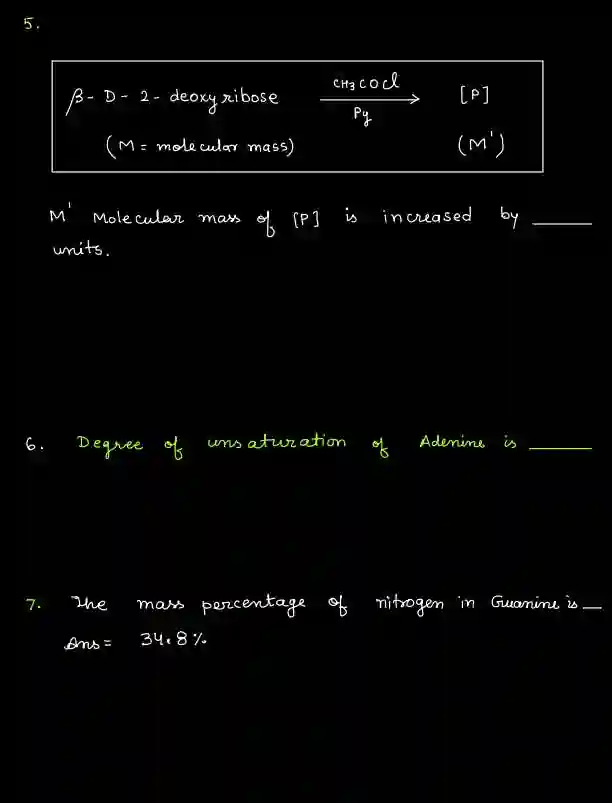 5.
β-D-2-deoxyribose CH3COCl [P]
Py
(M = molecular mass) (M')
M' Molecular mass of [P] is increased by ______
units.
6. Degree of unsaturation of Adenine is ______
7. The mass percentage of nitrogen in Guanine is __
Ans = 34.8%